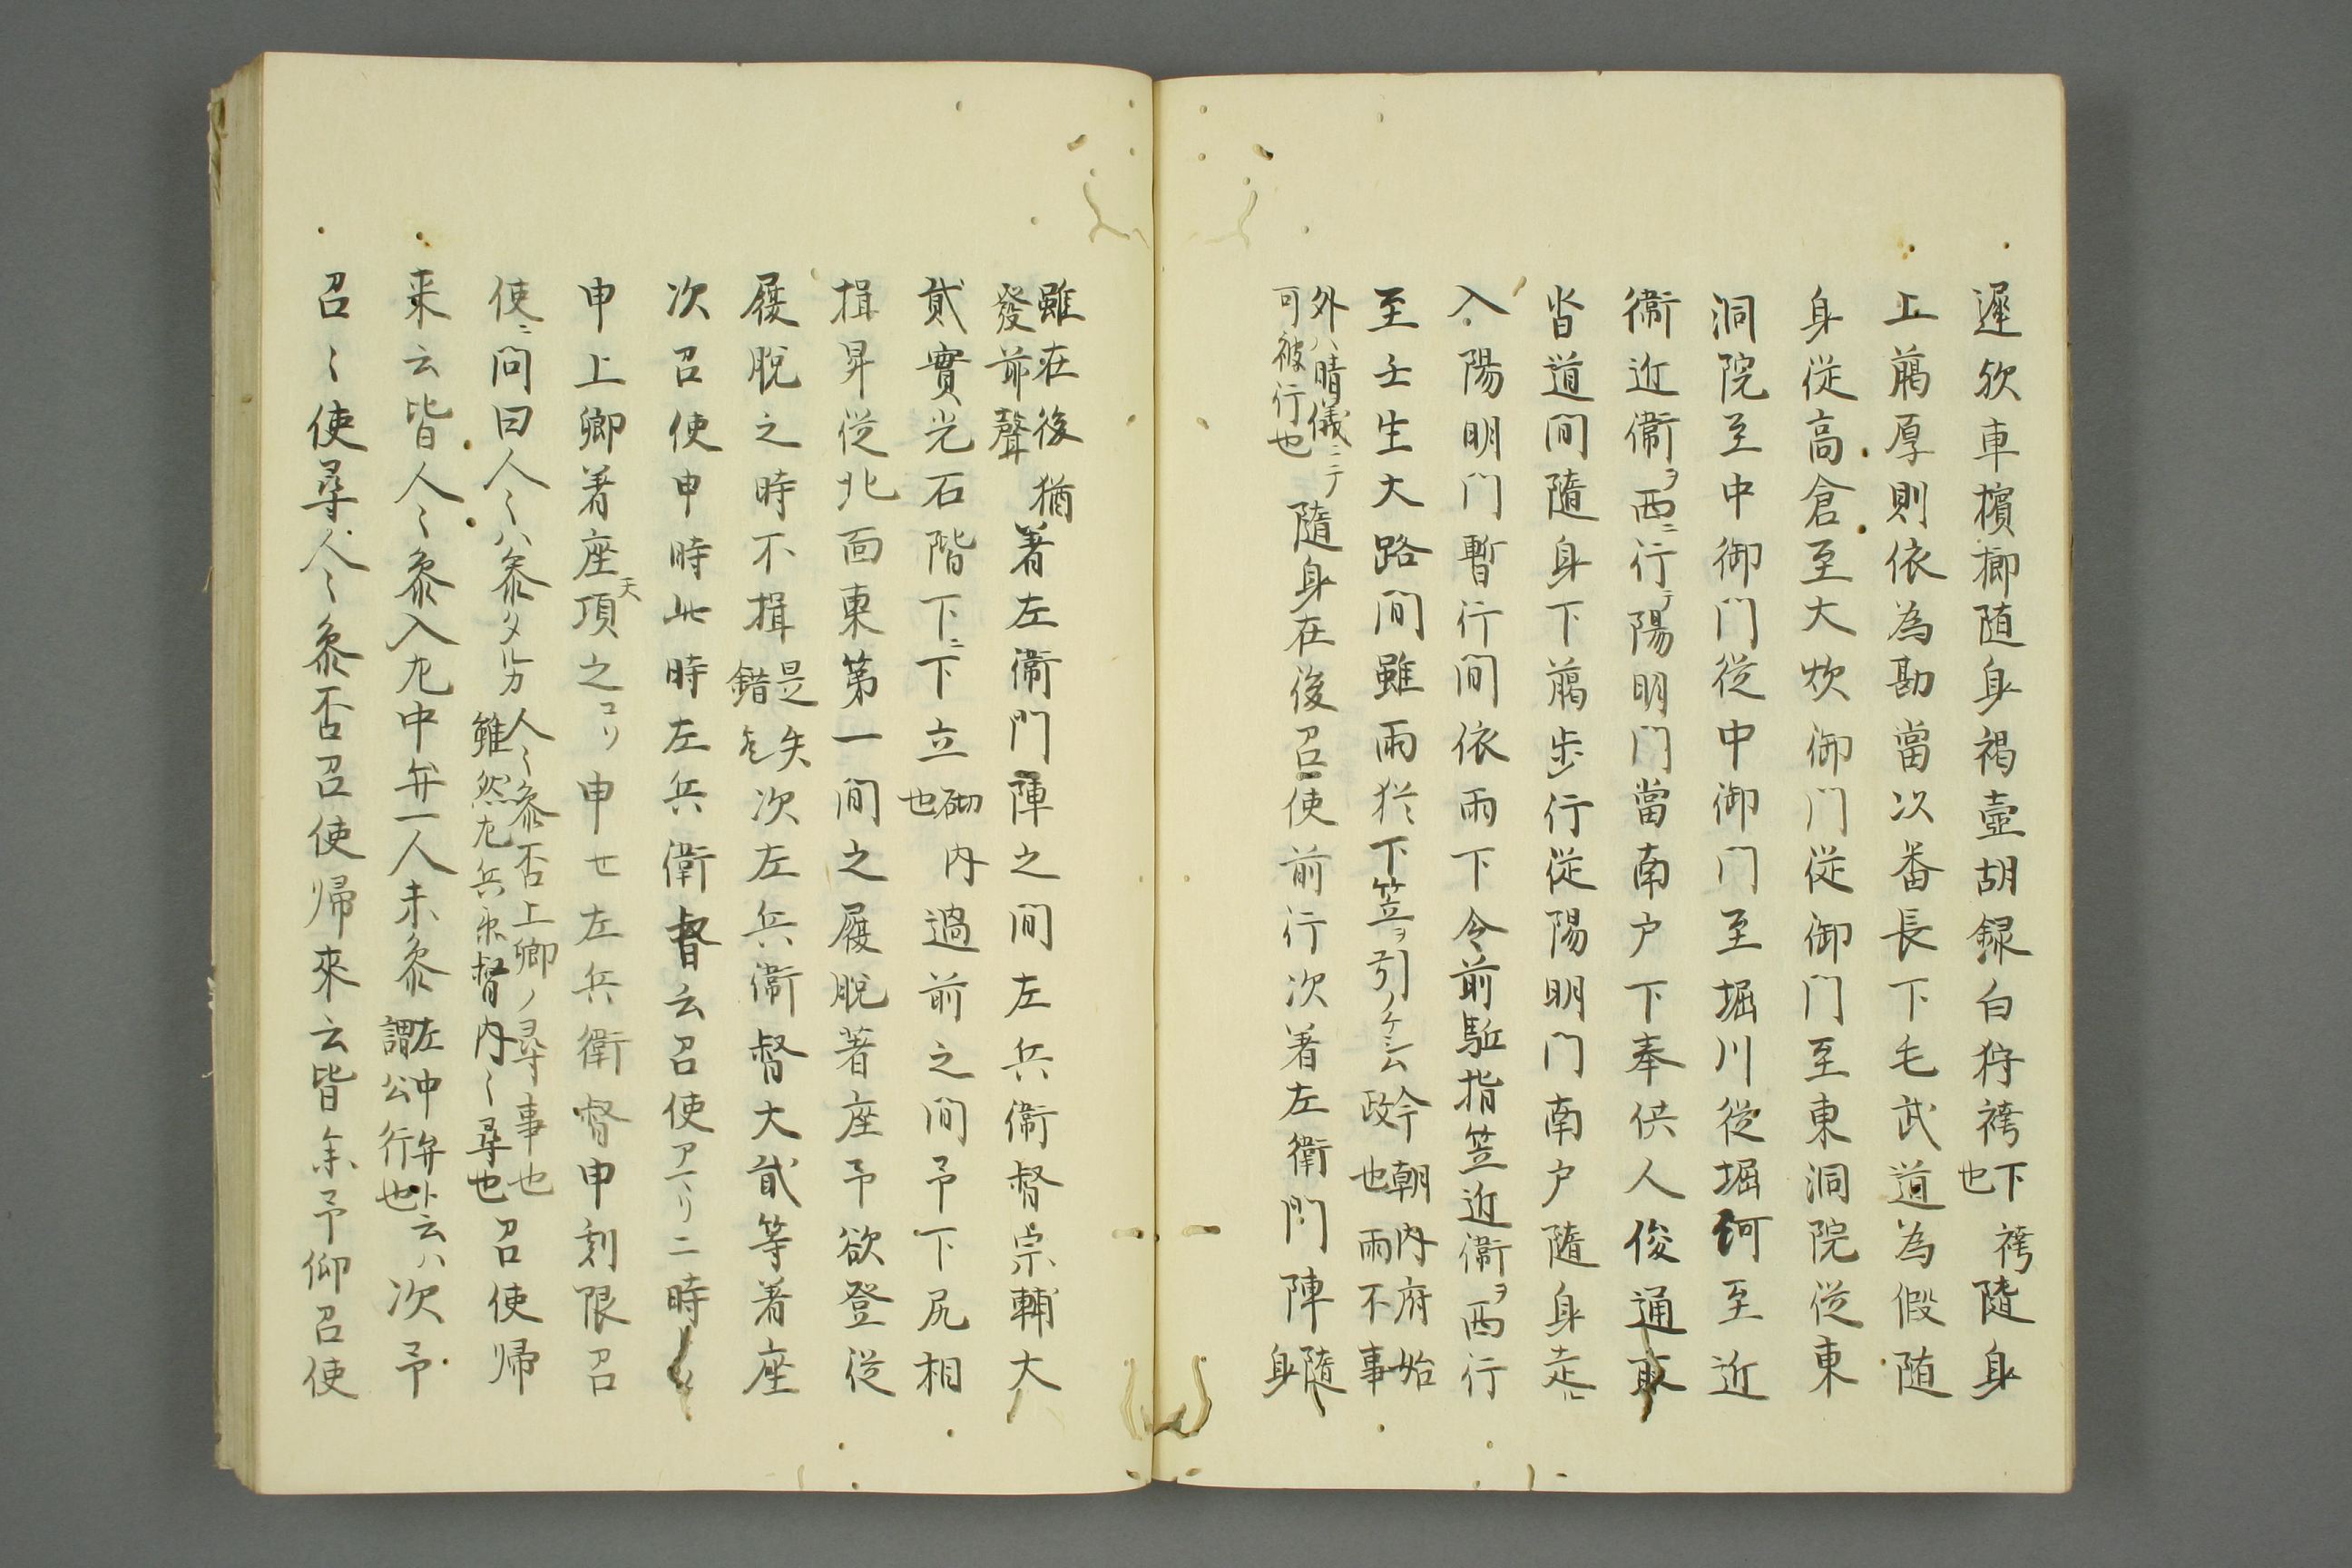 遲欤車檳榔随身褐壺胡録白狩袴下袴也隨身
上﨟厚則依為勘當次番長下毛武道為假随
身従高倉至大炊御門従御門至東洞院従東
洞院至中御門従中御門至堀川従堀河至近
衛近衛ヲ西ニ行テ陽明門當南户下奉供人俊通取
沓道間隨身下﨟步行従陽明門南户隨身走ル
入陽明門暫行間依雨下令前駈指笠近衛ヲ西行
至壬生大路間雖雨猶下笠ヲ引ノケシム今朝内府始政也雨不事
外ハ晴儀ニテ可被行也隨身在後召使前行次着左衛門陣隨身
雖在後猶發前聲着左衛門陣之間左兵衛督宗輔大
貳實光石階下ニ下立砌内也過前之間予下尻相
揖昇従北面東第一間之履脱著座予欲登従
履脱之時不揖是失錯也次左兵衛督大貳等着座
次召使申時此時左兵衛督云召使アマリニ時
申上卿着座天項之コリ申セ左兵衛督申刻限召
使ニ問曰人〻ハ参タル歟人〻参否上卿ノ尋事也雖然左兵衛督内〻尋也召使帰
来云皆人〻参入左中弁一人未参左中弁ト云ハ謂公行也次予
召〻使尋人〻参否召使帰來云皆参予仰召使